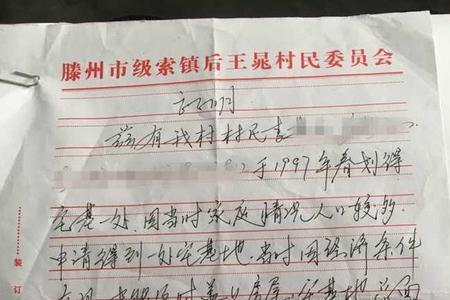 滕州市级索镇后王晁村民委员会
证明
兹有我村村民李
于1997年春划得
宅基一处,因当时家庭情况人口较多,
申请得到一处宅基地,当时因经济条件
装订